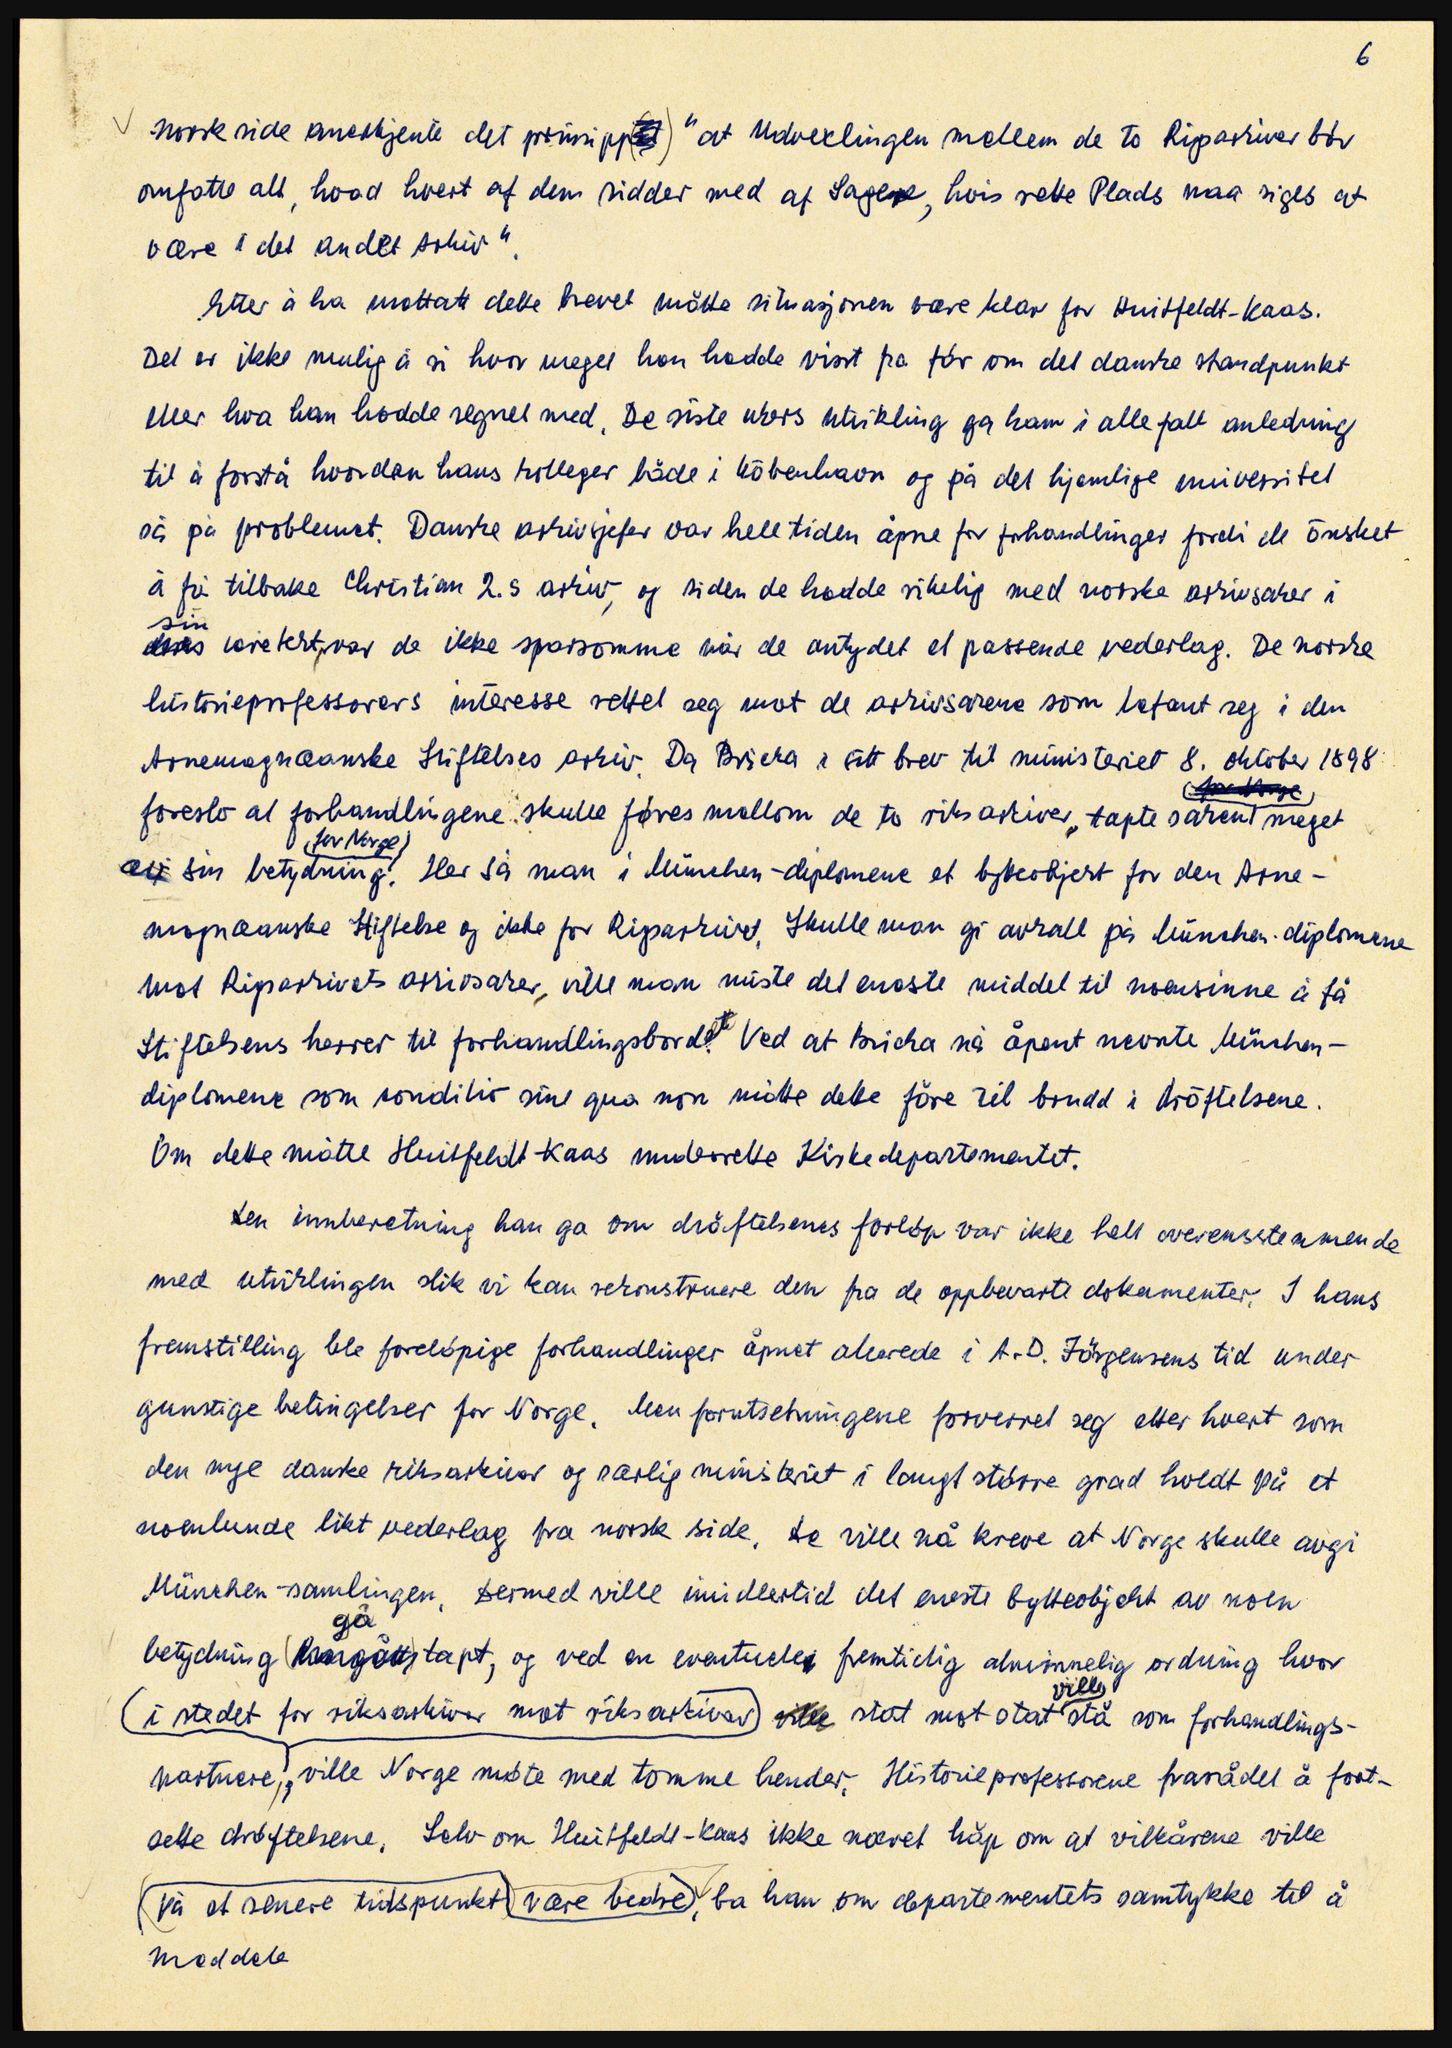 6
norsk side anerkjente det prinsipp "at Udvexlingen mellem de to Rigsarkiver bör
omfatte alt, hvad hvert af dem sidder med af Sager, hvis rette Plads maa siges at
være i det andet Arkiv".
Etter å ha mottatt dette brevet måtte situasjonen være klar for Huitfeldt-Kaas.
Det er ikke mulig å si hvor meget han hadde visst fra för om det danske standpunkt
eller hva han hadde regnet med. De siste ukers utvikling ga ham i alle fall anledning
til å forstå hvordan hans kolleger både i Köbenhavn og på det hjemlige universitet
så på problemet. Danske arkivsjefer var hele tiden åpne for forhandlinger fordi de önsket
å få tilbake Christian 2.s arkiv, og siden de hadde rikelig med norske arkivsaker i
sin
deres varetekt, var de ikke sparsomme når de antydet et passende vederlag. De norske
historieprofessorers interesse rettet seg mot de arkivsakene som befant seg i den
Arnemagnæanske Stiftelses arkiv. Da Bricka i sitt brev til ministeriet 8. oktober 1898
for Norge
foreslo at forhandlingene skulle föres mellom de to riksarkiver, tapte saken meget
for Norge
av sin betydning. Her så man i München-diplomene et bytteobjekt for den Arne-
magnæanske Stiftelse og ikke for Rigsarkivet. Skulle man gi avkall på München-diplomene
mot Rigsarkivets arkivsaker, ville man miste det eneste middel til noensinne å få
Stiftelsens herrer til forhandlingsbordet. Ved at Bricka nå åpent nevnte München-
diplomene som conditio sine qua non måtte dette före til brudd i dröftelsene.
Om dette måtte Huitfeldt-Kaas underrette Kirkedepartementet.
Den innberetning han ga om dröftelsenes forlöp var ikke helt overensstemmende
med utviklingen slik vi kan rekonstruere den fra de oppbevarte dokumenter. I hans
fremstilling ble forelöpige forhandlinger åpnet allerede i A.D. Jörgensens tid under
gunstige betingelser for Norge. Men forutsetningene forverret seg etter hvert som
den nye danske riksarkivar og særlig ministeriet i langt större grad holdt på et
noenlunde likt vederlag fra norsk side. De ville nå kreve at Norge skulle avgi
München-samlingen. Dermed ville imidlertid det eneste bytteobjekt av noen
gå
betydning tapt, og ved en eventuell fremtidig alminnelig ordning hvor
ville
i stedet for riksarkivar mot riksarkivar ville stat mot stat stå som forhandlings-
partnere, ville Norge møte med tomme hender. Historieprofessorene frarådet å fort-
sette dröftelsene. Selv om Huitfeldt-Kaas ikke næret håp om at vilkårene ville
på et senere tidspunkt være bedre, ba han om departementets samtykke til å
meddele